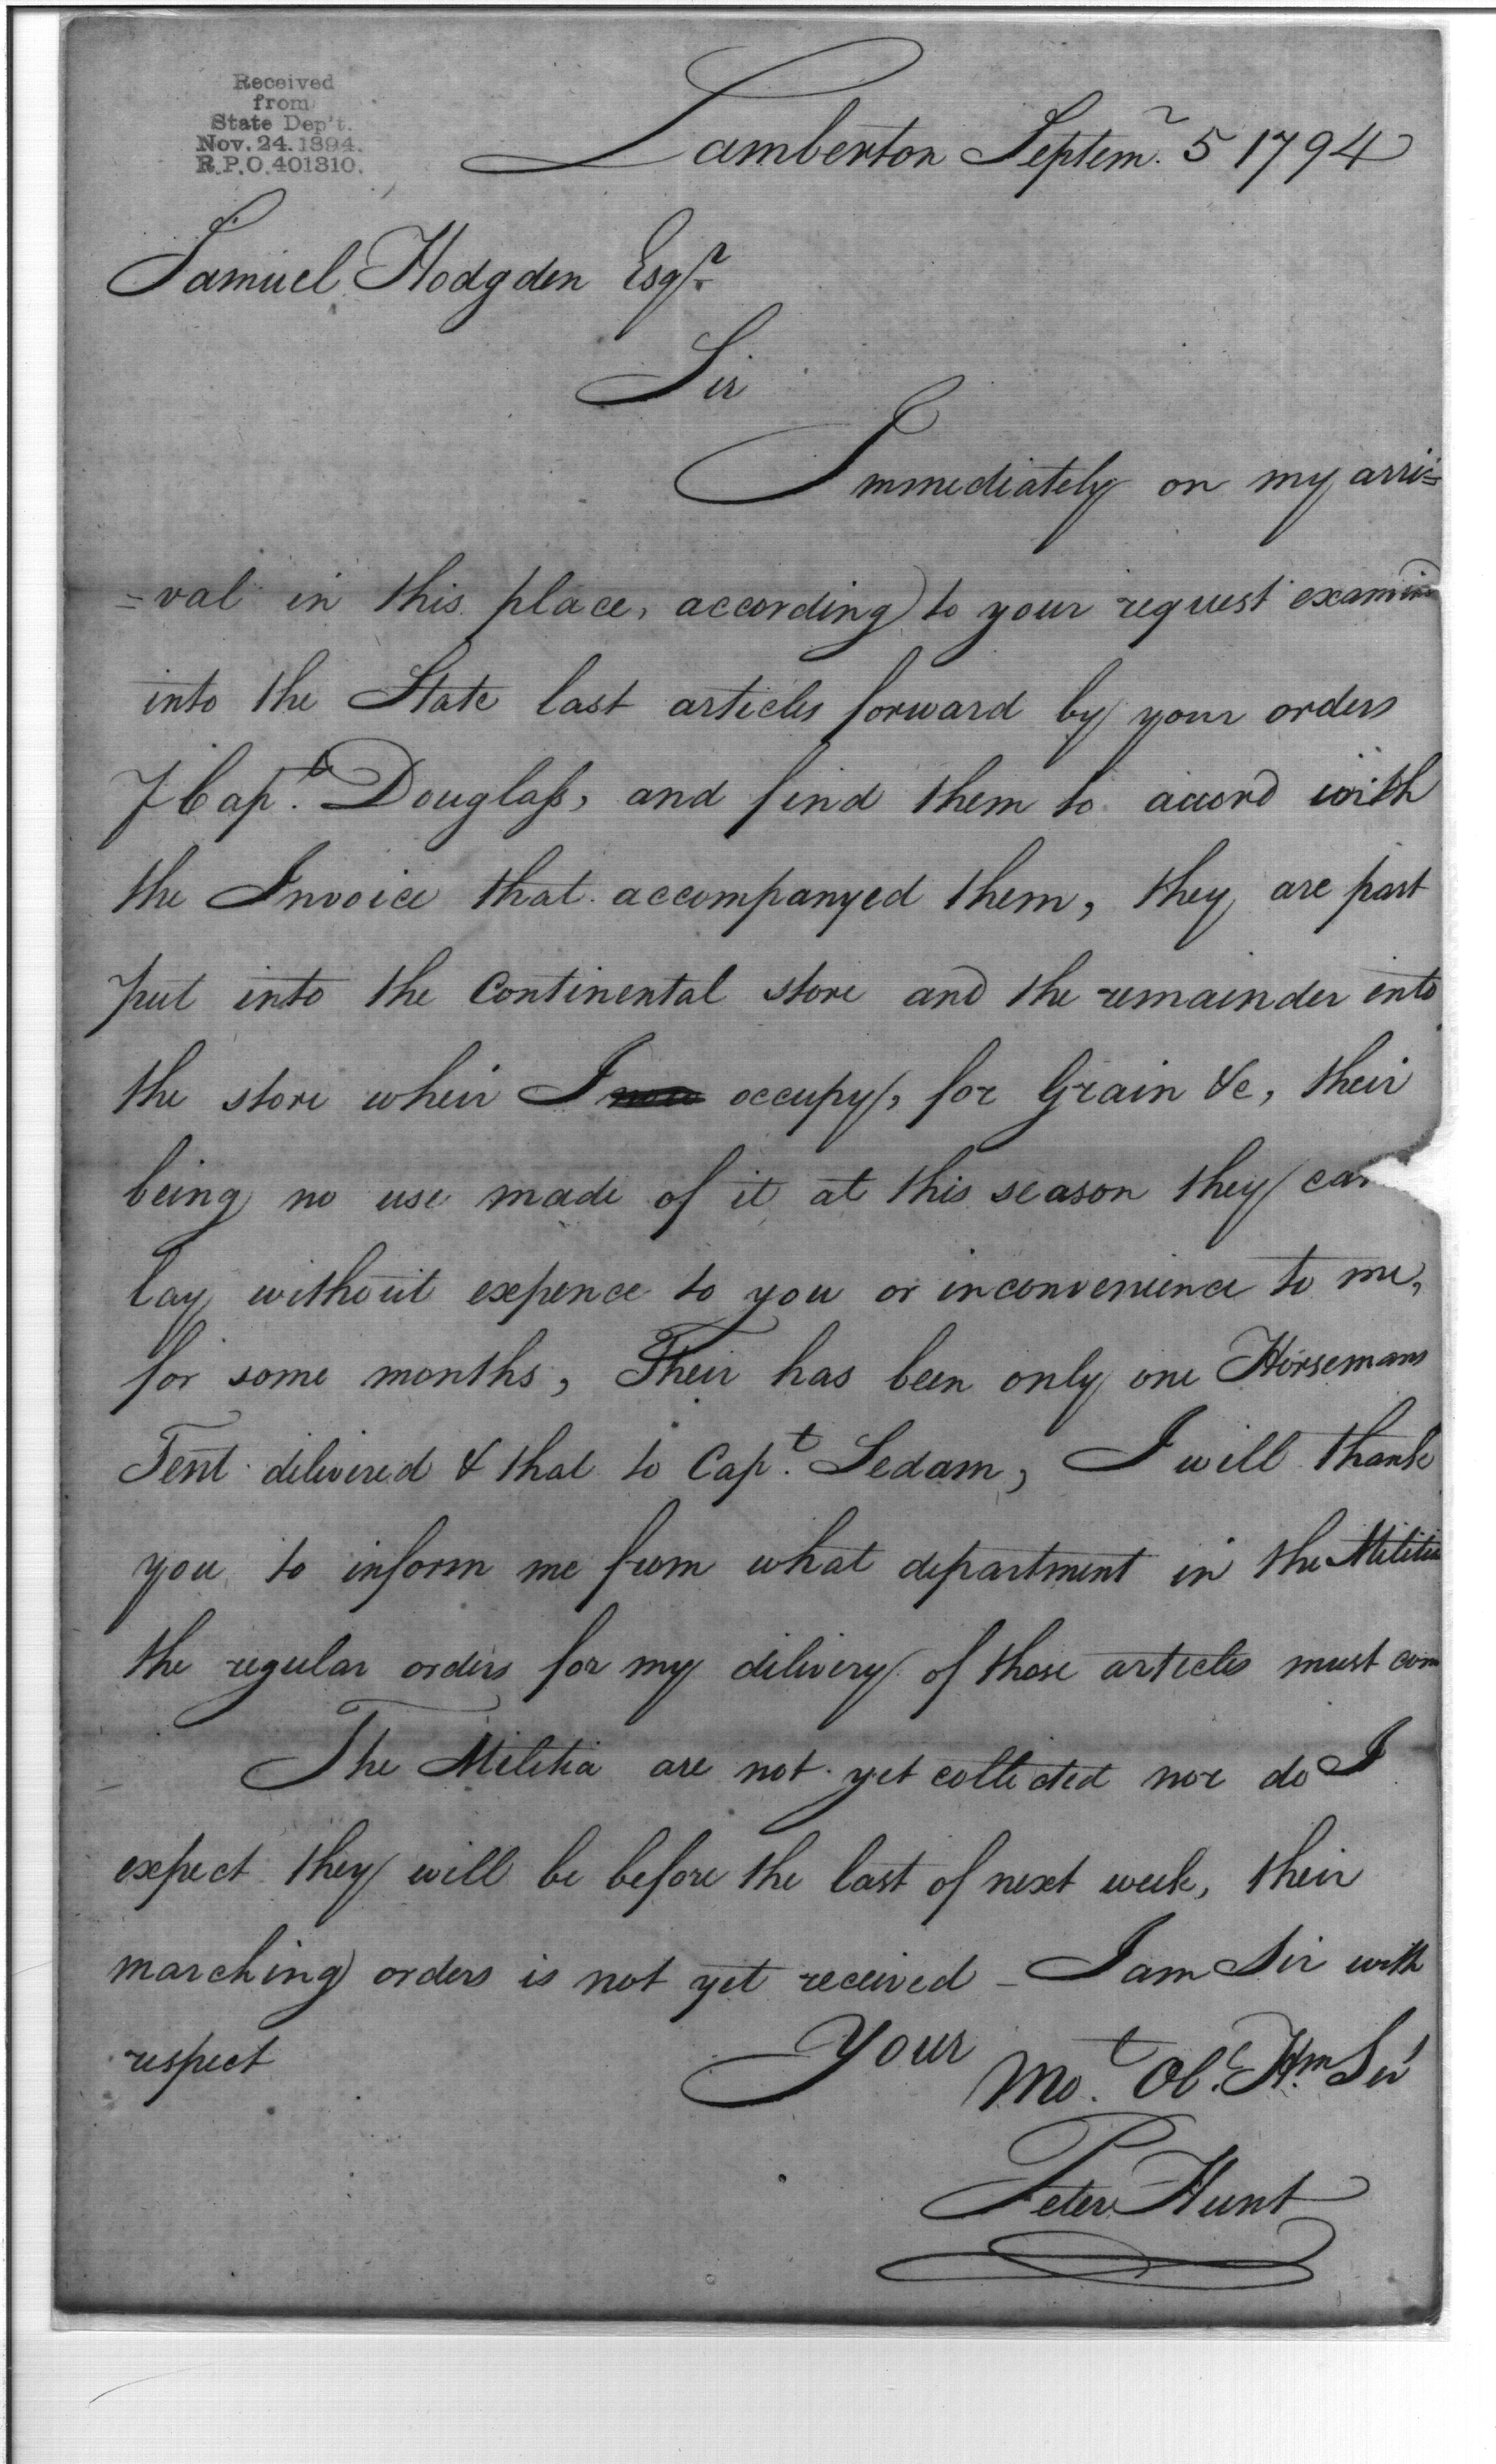 Received
from
State Dep't.
Nov. 24. 1894.
R.P.O. 401310.
Lamberton Septemr. 5 1794
Samuel Hodgden Esqr.
Sir
Immediately on my arri=
=val in this place, according to your request examin'd
into the State last articles forward by your orders
⅌ Capt. Douglass, and find them to accord with
the Invoice that accompanyed them, they are part
put into the Continental store and the remainder into
the store wheir I occupy, for Grain &c, their
being no use made of it at this season they can
lay without expence to you or inconvenience to me,
for some months, Their has been only one Horsemans
Tent dilivired & that to Capt. Sedam, I will thank
you to inform me from what department in the Militia
the regular orders for my dilivery of those articles must com
The Militia are not yet collected nor do I
expect they will be before the last of next week, their
marching orders is not yet received - I am Sir with
respect
Your
Mot. Obt. Hm Sert
Peter Hunt